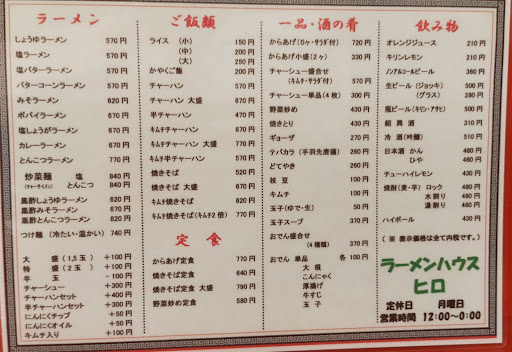 ラーメン
しょうゆラーメン 570円
塩ラーメン 570円
塩バターラーメン 670円
バターコーンラーメン 670円
みそラーメン 620円
ポパイラーメン 670円
塩しょうがラーメン 670円
カレーラーメン 670円
とんこつラーメン 670円
炒菜麺 塩 840円
(チャーサイメン) とんこつ 840円
黒酢しょうゆラーメン 620円
黒酢みそラーメン 670円
黒酢とんこつラーメン 680円
つけ麺 (冷たい・温かい) 740円
大 盛 (1,5玉) +100円
特 盛 (2玉) +150円
半 玉 -100円
チャーシュー +300円
チャーハンセット +400円
半チャーハンセット +300円
にんにくチップ +50円
にんにくオイル +50円
キムチ入り +100円
ご飯類
ライス (小) 150円
(中) 200円
(大) 250円
かやくご飯 200円
チャーハン 570円
チャーハン 大盛 670円
半チャーハン 470円
キムチチャーハン 670円
キムチチャーハン 大盛 770円
キムチ半チャーハン 570円
焼きそば 570円
焼きそば 大盛 670円
キムチ焼きそば 670円
キムチ焼きそば(キムチ2倍) 770円
定食
からあげ定食 770円
焼きそば定食 640円
焼きそば定食 大盛 790円
野菜炒め定食 580円
一品・酒の肴
からあげ(5ヶ・サラダ付) 720円
からあげ小盛(2ヶ) 330円
チャーシュー盛合せ
(キムチ・サラダ付) 570円
チャーシュー単品(4枚) 300円
野菜炒め 430円
焼きとり 430円
ギョーザ 270円
テバカラ(手羽先唐揚) 260円
どてやき 260円
枝 豆 260円
キムチ 210円
玉子(ゆで・生) 50円
玉子スープ 370円
おでん盛合せ
(4種類) 370円
おでん 単品 各 100円
大 根
こんにゃく
厚揚げ
牛すじ
玉 子
飲み物
オレンジジュース 210円
キリンレモン 210円
ノンアルコールビール 360円
生ビール (ジョッキ) 460円
(グラス) 280円
瓶ビール(キリン・アサヒ) 560円
紹 興 酒 310円
冷 酒(吟醸) 510円
日本酒 かん 460円
ひや 460円
チューハイレモン 360円
焼酎(麦・芋) ロック 460円
水割り 460円
湯割り 460円
ハイボール 360円
( ※ 表示価格は全て内税です。)
ラーメンハウス
ヒロ
定休日 月曜日
営業時間 12:00~0:00